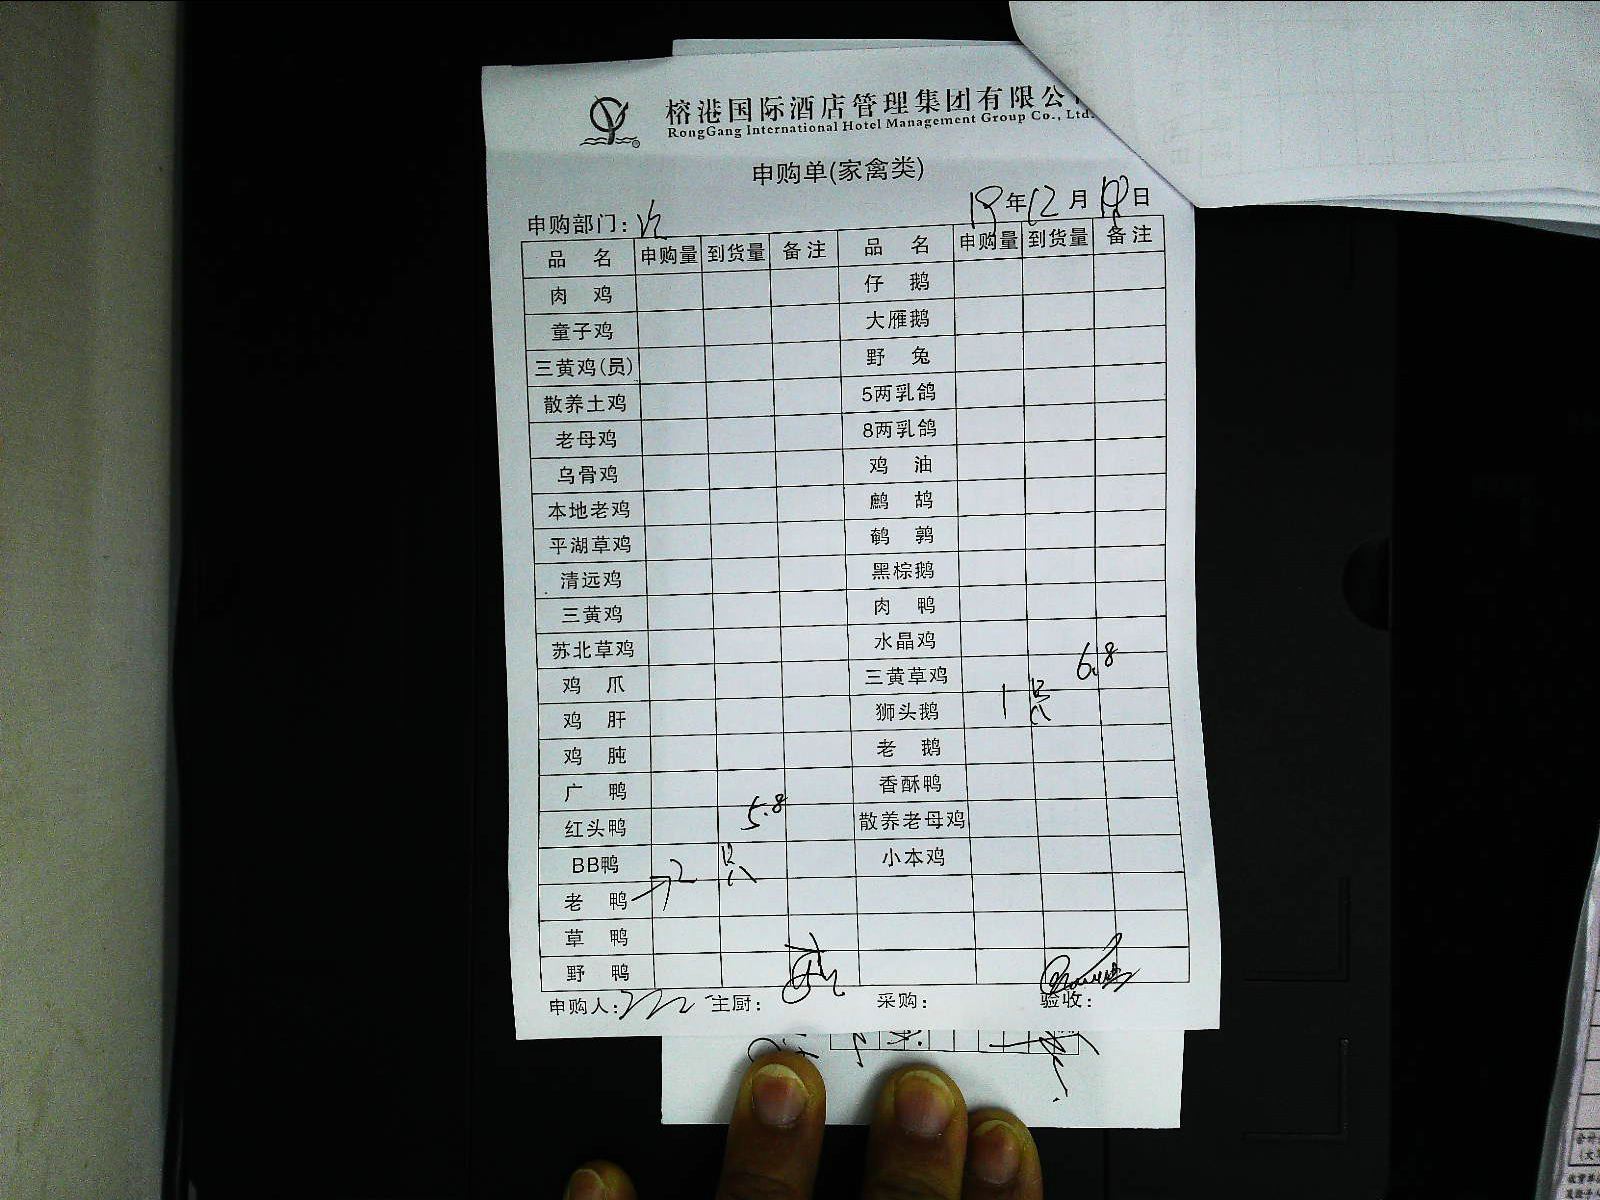 榕港国际酒店管理集团有限公
RongGang International Hotel Management Group Co., Ltd.
申购单(家禽类)
申购部门:
19年12月19日
品名 申购量 到货量 备注 品名 申购量 到货量 备注
肉鸡 仔鹅
童子鸡 大雁鹅
三黄鸡(员) 野兔
散养土鸡 5两乳鸽
老母鸡 8两乳鸽
乌骨鸡 鸡油
本地老鸡 鹧鸪
平湖草鸡 鹌鹑
清远鸡 黑棕鹅
三黄鸡 肉鸭
苏北草鸡 水晶鸡
鸡爪 三黄草鸡 6.8
鸡肝 狮头鹅 1 只
鸡肫 老鹅
广鸭 香酥鸭
红头鸭 5.8 散养老母鸡
BB鸭 2 只 小本鸡
老鸭
草鸭
野鸭
申购人: 主厨: 采购: 验收: